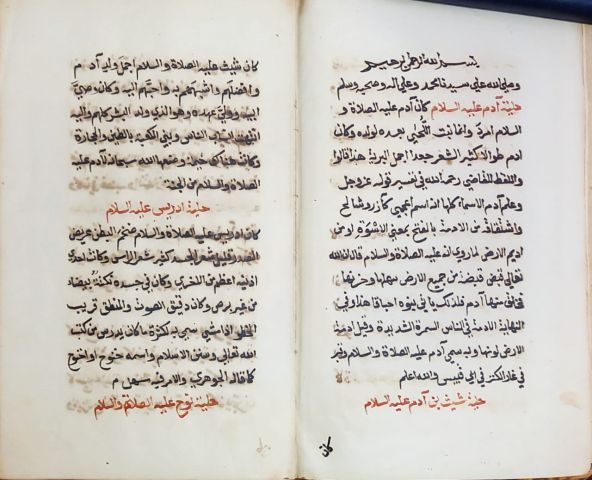 بسم الله الرحمن الرحيم
وصلى الله على سيدنا محمد وعلى اله وصحبه وسلم
حلية آدم عليه السلام كان آدم عليه الصلاة و
السلام امرد وانما نبتت اللحى بعده لولده وكان
ادم طوالا كثير الشعر جعدا اجمل البرية هذا قالوا
واللفظ للقاضي رحمه الله في تفسير قوله عز وجل
وعلم آدم الاسماء كلها آدم اسم اعجمي كآزر وشالخ
واشتقاقه من الادمة بالفتح بمعنى الاسوة او من
اديم الارض لما روى انه عليه الصلاة والسلام قال ان الله
تعالى قبض قبضة من جميع الارض سهلها وحزنها
فخلق منها آدم فلذلك يأتي بنوه اخيافا هذا وفي
النهاية الادمة في الناس السمرة الشديدة وقيل ادمة
الارض لونها وبه سمي آدم عليه الصلاة والسلام وقبر
في غار الكنز في ابي قبيس والله اعلم
حلية شيث بن آدم عليه السلام
كان
كان شيث عليه الصلاة والسلام اجمل ولد آدم
وافضلهم واشبههم به واحبهم اليه وكان وصي
ابيه وولي عهده وهو الذي ولد البشر كلهم واليه
انتهت انساب الناس وبنى الكعبة بالطين والحجارة
وكانت هناك خيمة وضعها الله سبحانه لآدم عليه
الصلاة والسلام من الجنة
حلية ادريس عليه السلام
كان ادريس عليه الصلاة والسلام ضخم البطن عريض
الصدر قليل شعر الجسد كثير شعر الراس وكانت احدى
اذنيه اعظم من الاخرى وكان في جسده نكتة بيضاء
من غير برص وكان دقيق الصوت والمنطق قريب
الخطو اذا مشى سمي به لكثرة ما كان يدرس من كتب
الله تعالى وسنن الاسلام واسمه خنوخ او اخنوخ
كما قاله الجوهري والامر فيه سهل م
حلية نوح عليه الصلاة والسلام